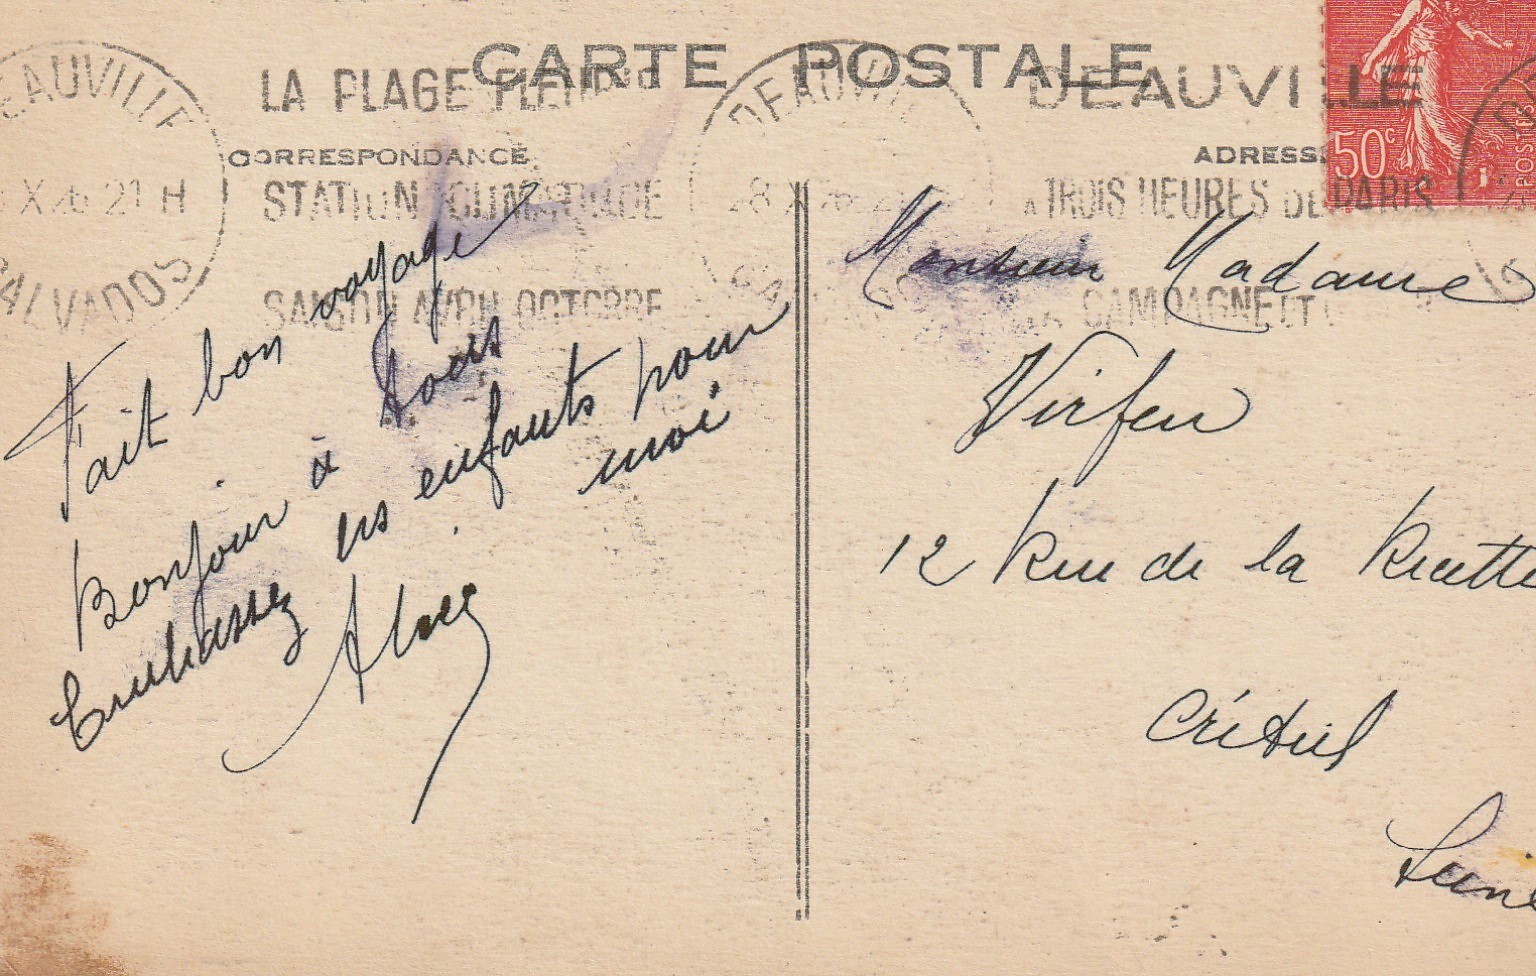 CARTE POSTALE
DEAUVILLE
CALVADOS
X 26 21 H
LA PLAGE FLEURIE
STATION
SAISON AVRIL OCTOBRE
DEAUVILLE
A TROIS HEURES DE PARIS
CAMPAGNE ET
50c
POSTES
CORRESPONDANCE
ADRESSE
Fait bon voyage
Bonjour à tous
Embrassez les enfants pour
moi
Monsieur Madame
Virfeu
12 Rue de la Recette
Créteil
Seine